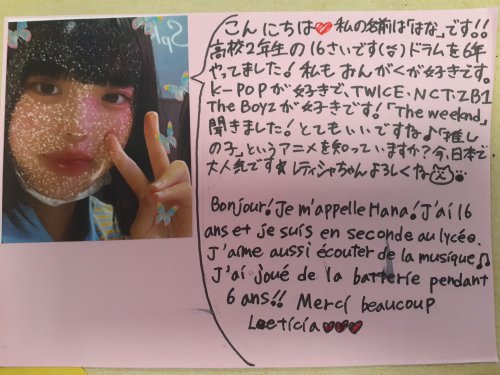 こんにちは♥私の名前は「はな」です!!
高校2年生の16さいです(ت)ドラムを6年
やってました!私もおんがくが好きです。
K-POPが好きで、TWICE・NCT・ZB1
The Boyzが好きです!「The weeknd」
聞きました!とてもいいですね♪「推し
の子」というアニメを知っていますか?今、日本で
大人気です★レティシャちゃんよろしくね
Bonjour! Je m'appelle Hana! J'ai 16
ans et je suis en seconde au lycée.
J'aime aussi écouter de la musique♫
J'ai joué de la batterie pendant
6 ans!! Merci beaucoup
Laeticia♥♥♥